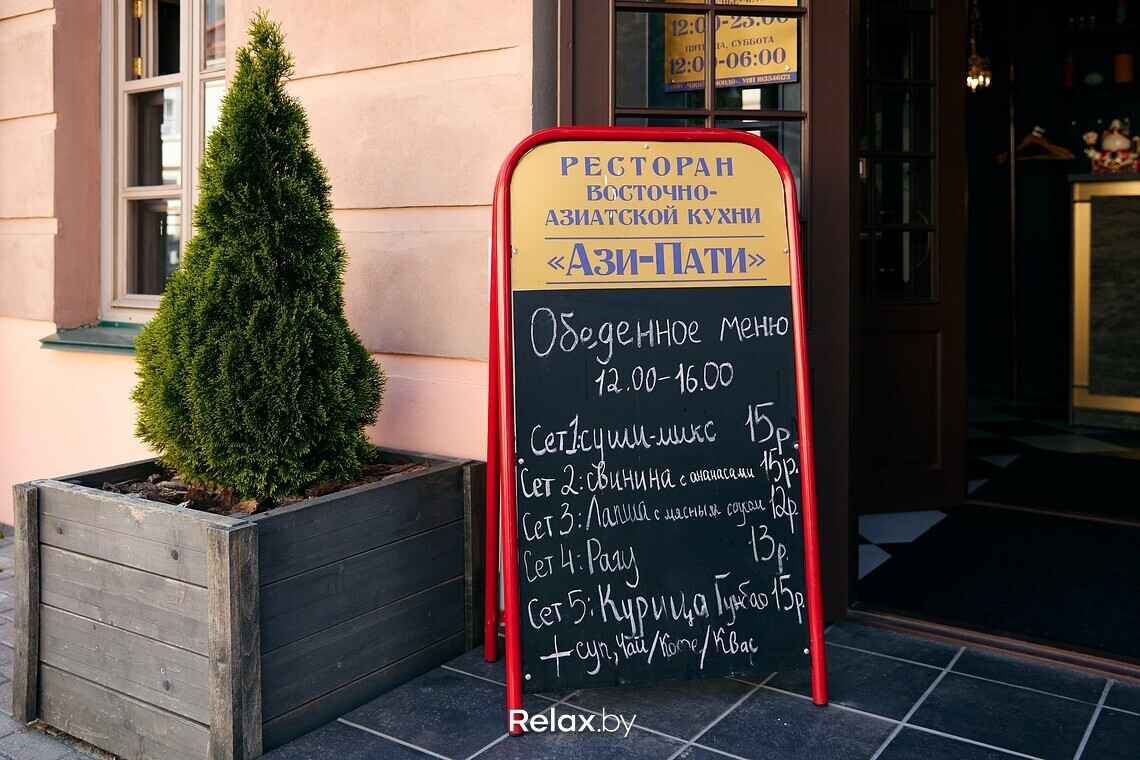 12:00-23:00
ПЯТНИЦА, СУББОТА
12:00-06:00
РЕСТОРАН
ВОСТОЧНО-
АЗИАТСКОЙ КУХНИ
«АЗИ-ПАТИ»
Обеденное меню
12.00-16.00
Сет 1: суши-микс 15р.
Сет 2: свинина с ананасами 15р.
Сет 3: Лапша с мясным соусом 12р.
Сет 4: Рагу 13р.
Сет 5: Курица Гунбао 15р.
+ суп, Чай/Кофе/Квас
Relax.by